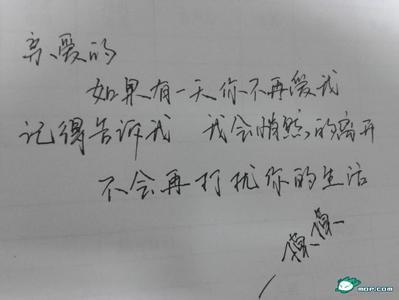 亲爱的
如果有一天你不再爱我
记得告诉我 我会悄然的离开
不会再打扰你的生活
mop.com